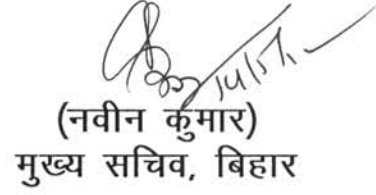 14/5/1
(नवीन कुमार)
मुख्य सचिव, बिहार